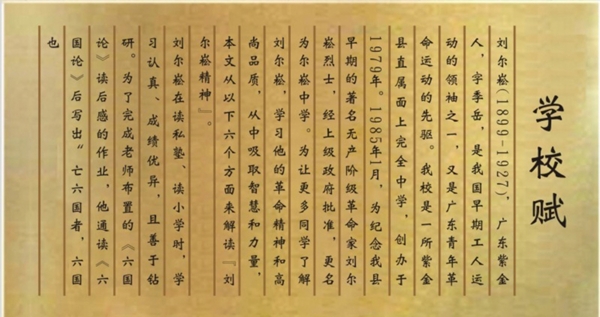 学校赋
刘尔崧(1899-1927)，广东紫金
人，字季岳，是我国早期工人运
动的领袖之一，又是广东青年革
命运动的先驱。我校是一所紫金
县直属面上完全中学，创办于
1979年。1985年1月，为纪念我县
早期的著名无产阶级革命家刘尔
崧烈士，经上级政府批准，更名
为尔崧中学。为让更多同学了解
刘尔崧，学习他的革命精神和高
尚品质，从中吸取智慧和力量，
本文从以下六个方面来解读『刘
尔崧精神』。
刘尔崧在读私塾、读小学时，学
习认真、成绩优异，且善于钻
研。为了完成老师布置的《六国
论》读后感的作业，他通读《六
国论》后写出“亡六国者，六国
也